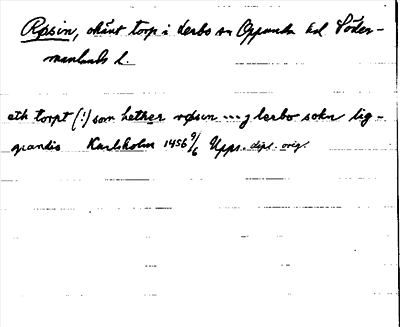 Røsin, okänt torp i Lerbo sn Oppunda hd Söder-
manlands l.
eth torpt (!) som hether røsin ... j lerbo sokn lig-
giandis Karlsholm 1456 9/6 Upps. dipl. orig.